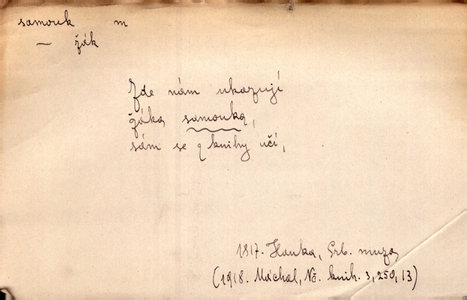 samouk m
— žák
Zde nám ukazují
žáka samouka,
sám se z knihy učí,
1817. Hanka, Srb. muza
(1918. Máchal, Nč. knih. 3, 250, 13)